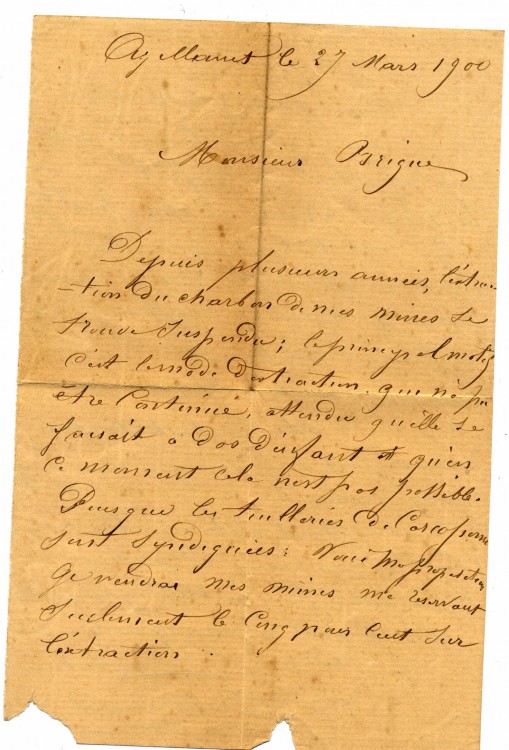 le 27 Mars 1900
Monsieur Brigue
Depuis plusieurs années, l'extrac
-tion du charbon de mes mines se
trouve suspendu; le principal motif
c'est le mode d'extraction que n'a pu
être continué, attendu qu'elle se
faisait a dos d'enfant et qu'en
ce moment cela n'est pas possible.
Puisque les tuilleries de Carcassonne
sont syndiquées: Voici ma proposition
Je vendrai mes mines me réservant
seulement le cinq pour cent sur
l'extraction.